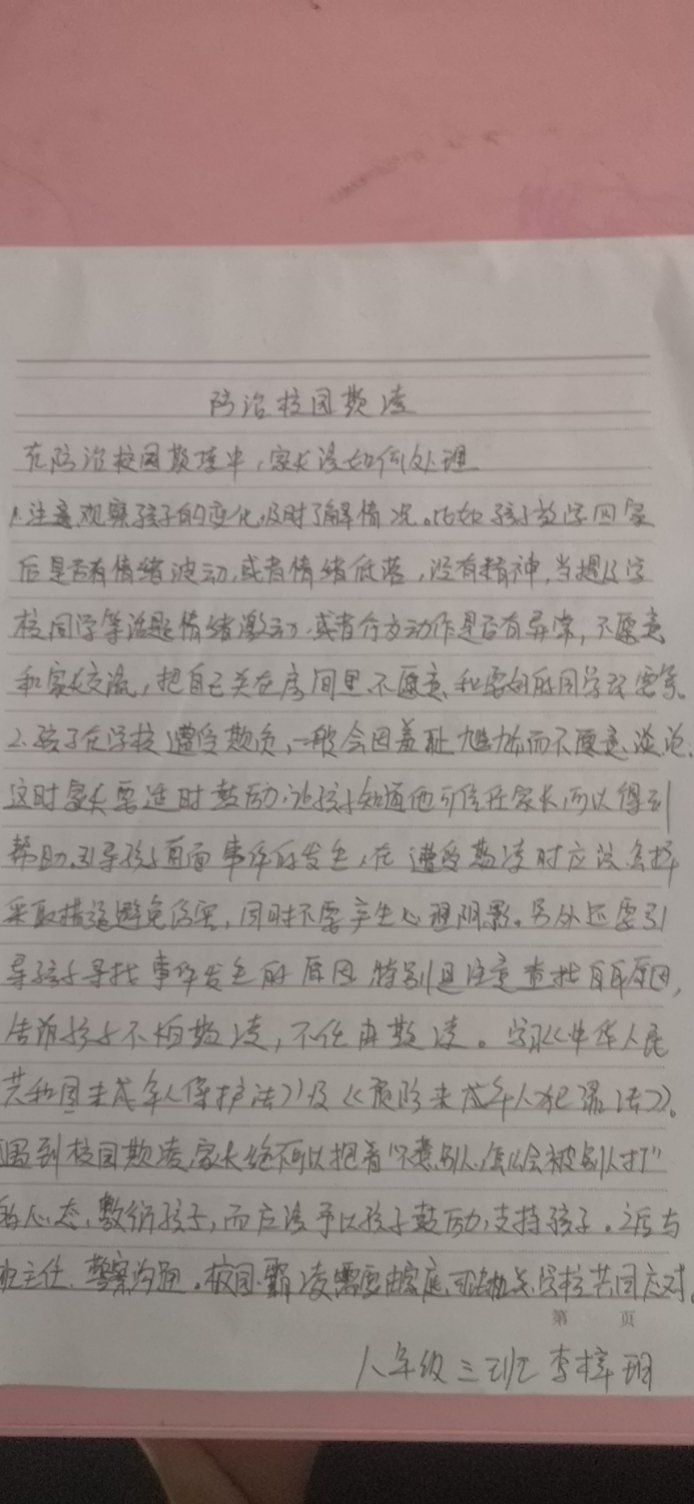 防治校园欺凌
在防治校园欺凌中,家长该如何处理
1.注意观察孩子的变化,及时了解情况。比如孩子放学回家
后是否有情绪波动,或者情绪低落,没有精神,当提及学
校同学等话题情绪激动,或者行为动作是否有异常,不愿意
和家长交流,把自己关在房间里,不愿意和要好的同学联系。
2.孩子在学校遭受欺负,一般会因羞耻尴尬而不愿意谈论,
这时家长要适时鼓励,让孩子知道他可信任家长,可以得到
帮助,引导孩子直面事件的发生,在遭受欺凌时应该怎样
采取措施避免伤害,同时不要产生心理阴影。另外还要引
导孩子寻找事件发生的原因,特别是注意查找自身原因,
告诉孩子不怕欺凌,不任由欺凌。学习《中华人民
共和国未成年人保护法》及《预防未成年人犯罪法》。
遇到校园欺凌,家长绝不可以抱着"不惹别人,怎么会被别人打"
的心态,敷衍孩子,而应该予以孩子鼓励,支持孩子。之后与
班主任、警察沟通。校园霸凌需要由家庭、司法机关、学校共同应对。
第 页
八年级三班 李梓